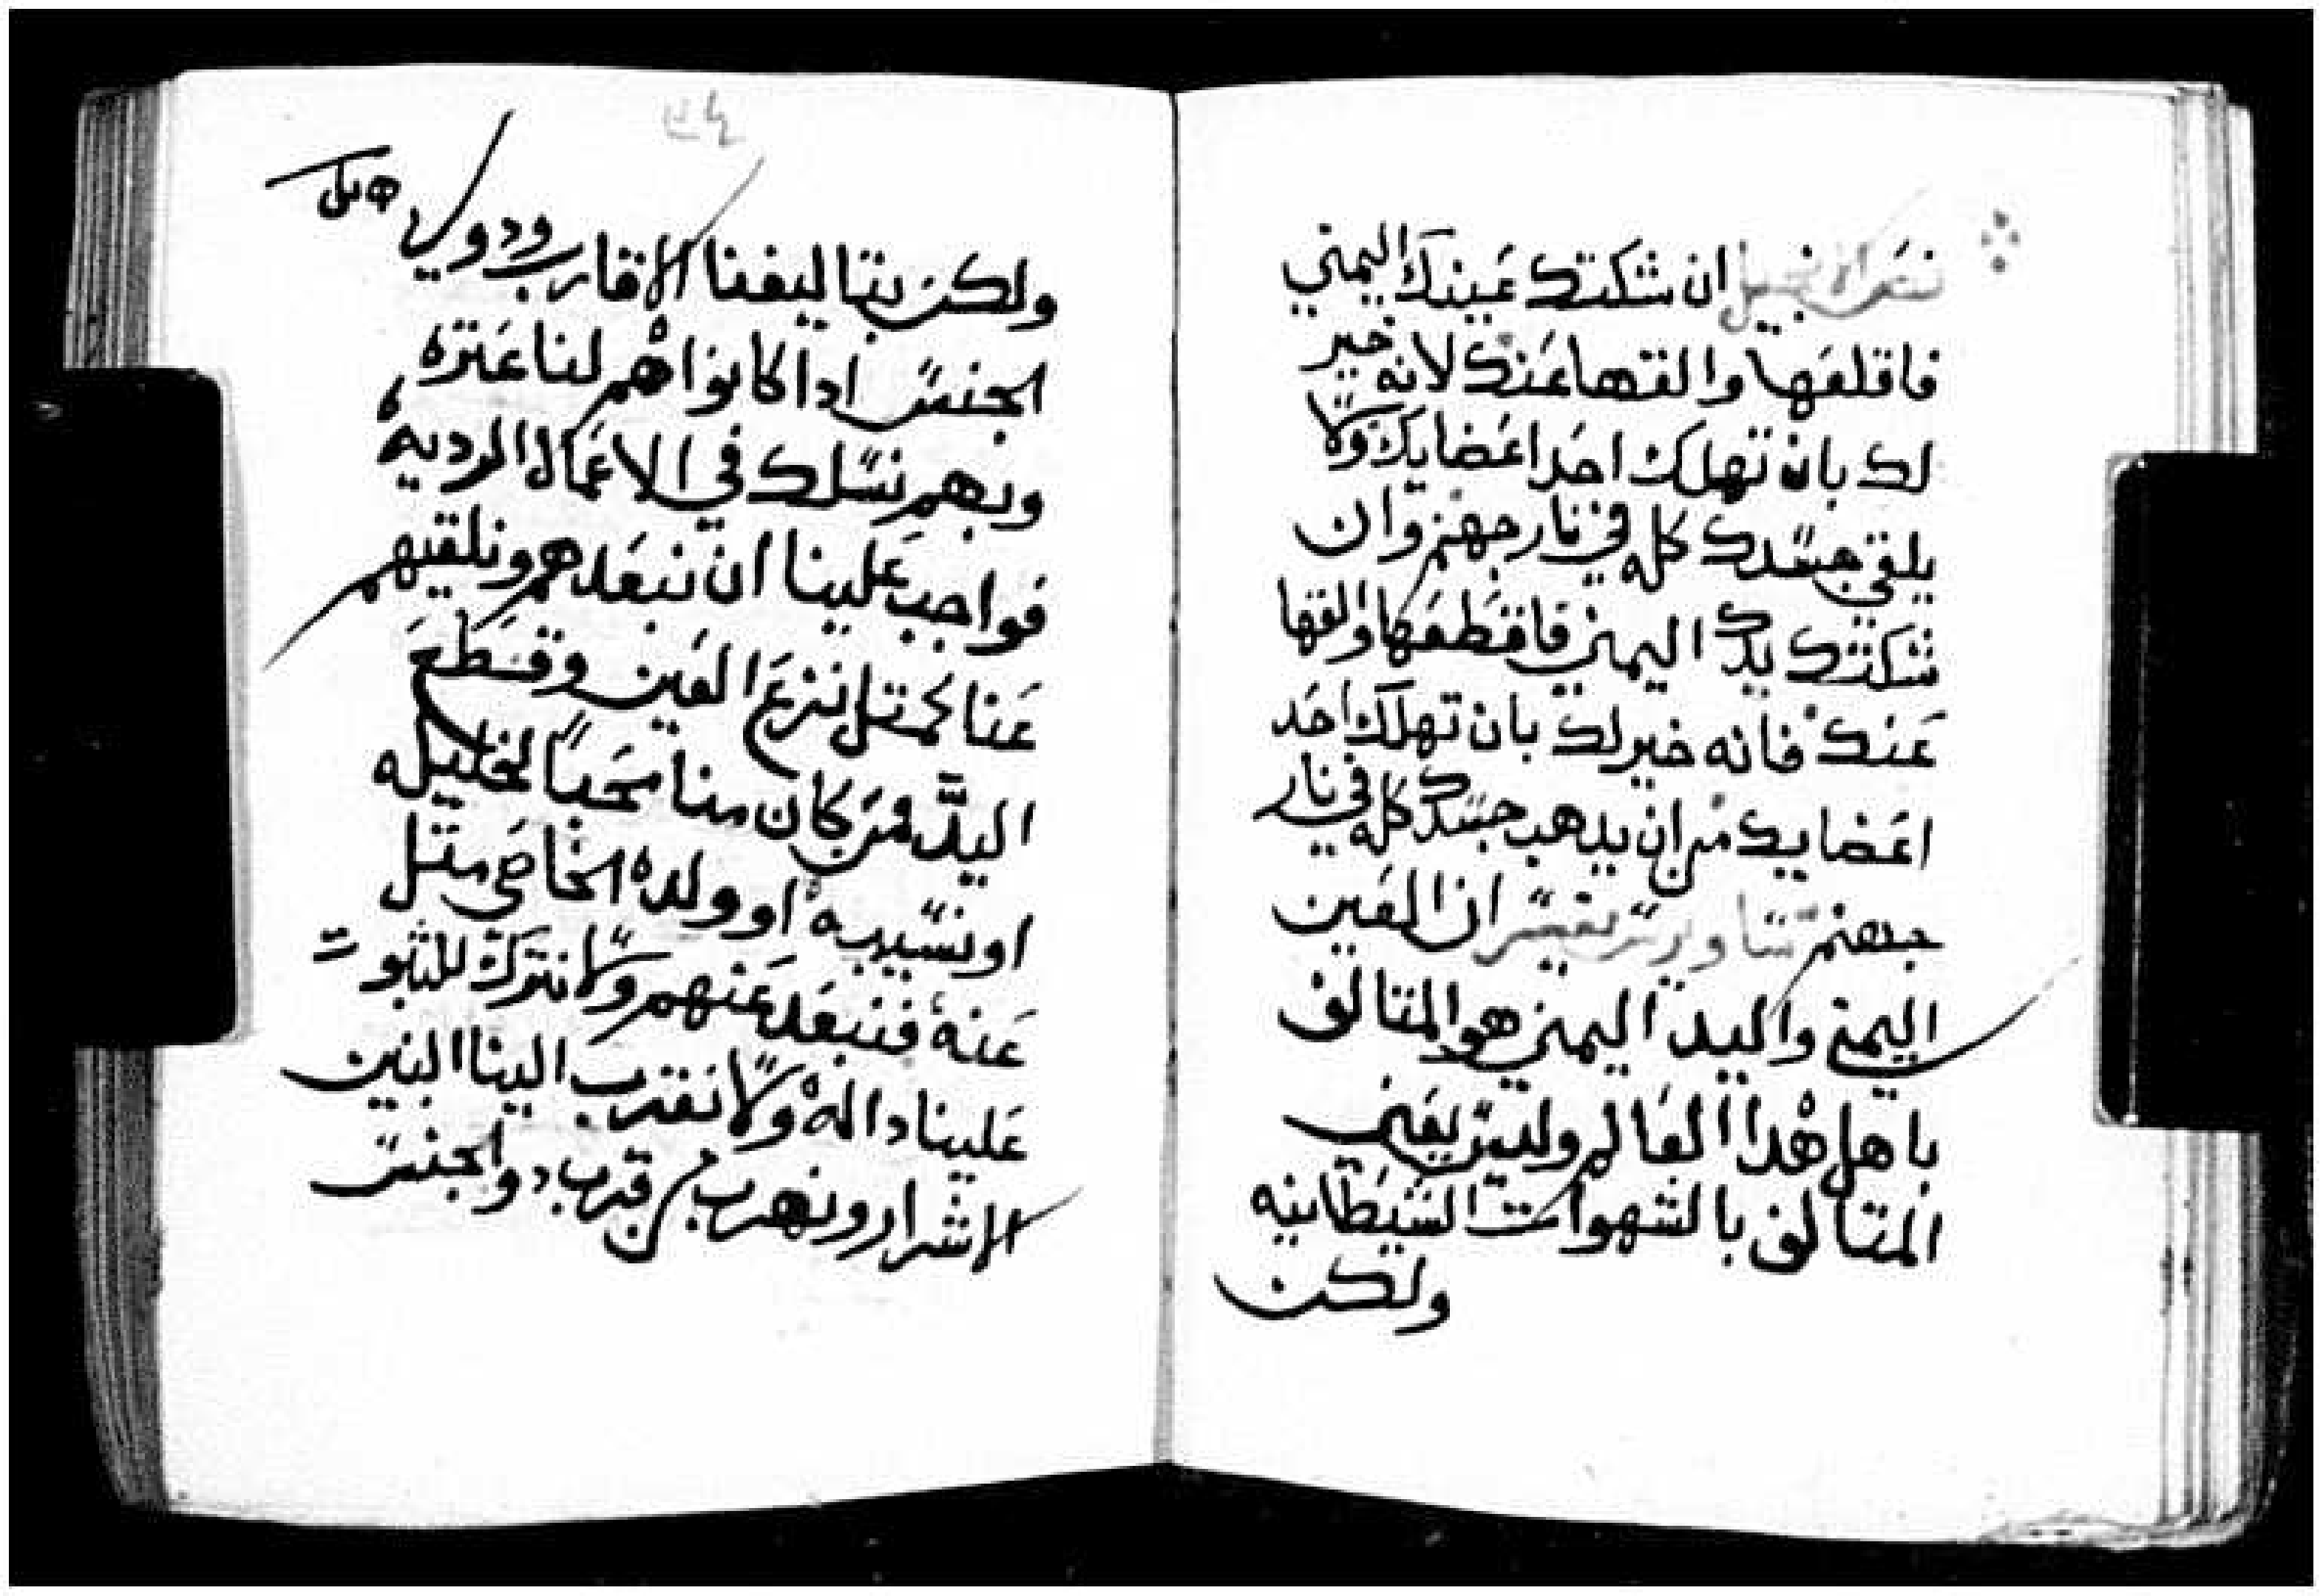 نص الانجيل ان شكتك عينك اليمني
فاقلعها والقها عنك لانه خير
لك بان تهلك احد اعضايك ولا
يلقي جسدك كله في نار جهنم وان
شكتك يدك اليمني فاقطعها والقها
عنك فانه خير لك بان تهلك احد
اعضايك من ان يدهب جسدك كله في نار
جهنم ساويرس يفسر ان العين
اليمني واليد اليمني هو المتالف
باهل هدا العالم وليس يعني
المتالف بالشهوات الشيطانيه
ولكن
ولكن بتاليفنا الاقارب ودوي
الجنس ادا كانوا هم لنا عترة
وبهم نسلك في الاعمال الرديه
فواجب علينا ان نبعدهم ونلقيهم
عنا كمتل نزع العين وقطع
اليد فمن كان منا محبا لخليله
او نسيبه او ولده الخاص متل
عينه فنبعد عنهم ولا نترك للثبوت
علينا داله ولا نقترب الينا البنين
الاشرار ونهرب من قرب دوا لجنس